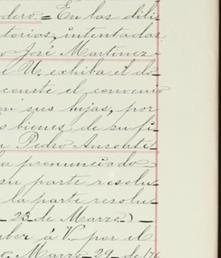 dero. = En las dili
torias, intentadas
o José Martinez
e U. exhiba el do
conste el convenio
sus hijas, por
s bienes, de sufi
n Pedro
la pronunciado
su parte resolu
la parte resolu
23 de Marzo) —
ber á V. por el
o. Marzo 29 de